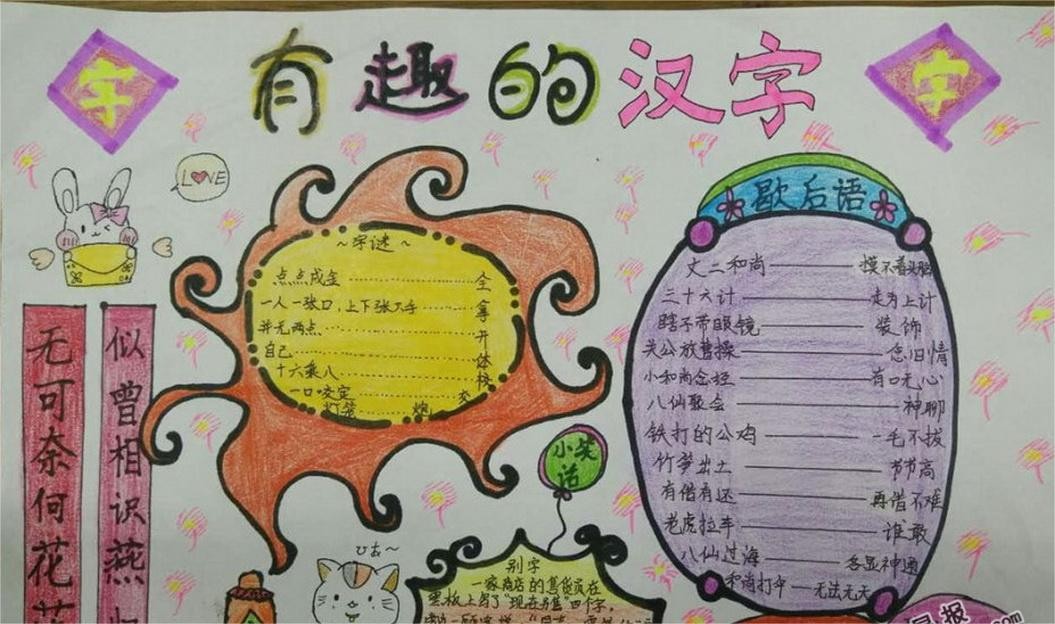 字
有趣的汉字
字
LOVE
无可奈何花
似曾相识燕
~字谜~
点点成金 全
一人一张口,上下张入手 拿
并无两点 开
自己 体
十六乘八 校
一口咬定 交
灯笼
歇后语
丈二和尚 摸不着头脑
三十六计 走为上计
瞎子带眼镜 装饰
关公放曹操 念旧情
小和尚念经 有口无心
八仙聚会 神聊
铁打的公鸡 一毛不拔
竹笋出土 节节高
有借有还 再借不难
老虎拉车 谁敢
八仙过海 各显神通
和尚打伞 无法无天
小笑话
ひあ~
别字
一家商店的售货员在
黑板上写了"现在另售"四个字,
报
.com